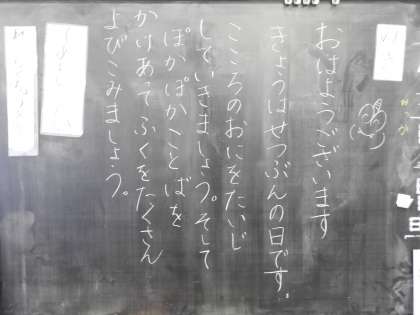 おはようございます
きょうはせつぶんの日です。
こころのおにをたいじ
していきましょう。そして
ぽかぽかことばを
かけあってふくをたくさん
よびこみましょう。